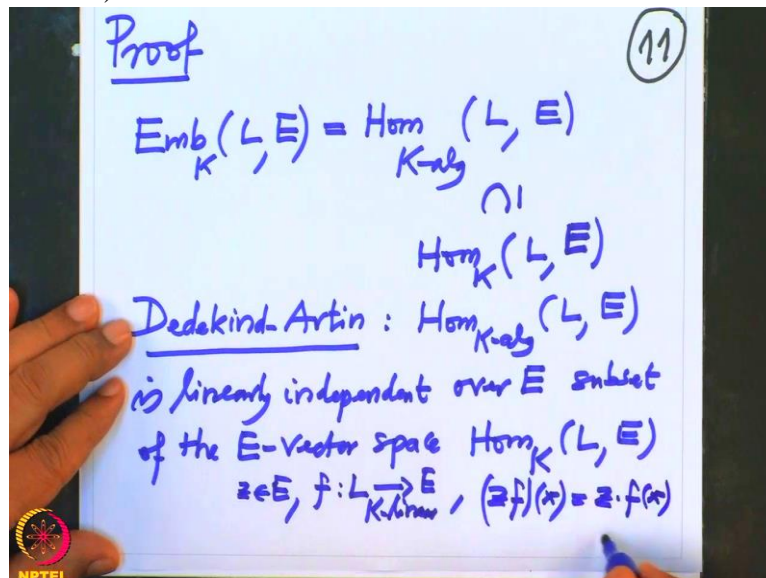 Proof
11
Emb_K (L, E) = Hom_{K-alg} (L, E)
∩|
Hom_K (L, E)
Dedekind-Artin : Hom_{K-alg} (L, E)
is linearly independent over E subset
of the E-vector space Hom_K (L, E)
z ∈ E, f : L → E, (zf)(x) = z · f(x)
K-linear
NPTEL